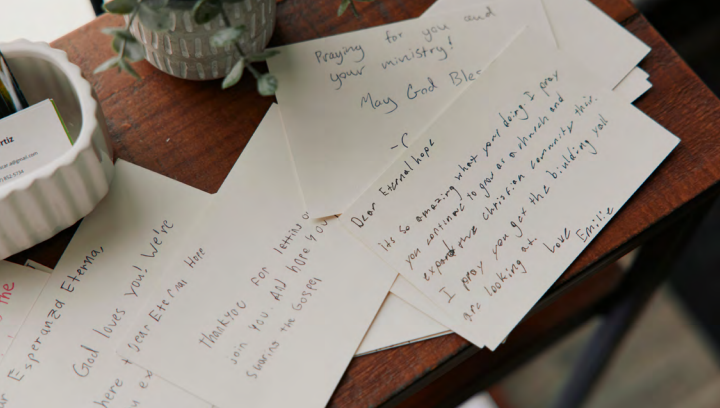 Praying for you and
your ministry!
May God Ble
Dear Eternal hope
its so amazing what your doing I pray
you continue to grow as a church and
expand the christian community their.
I pray you get the building you
are looking at
Love
Emilie
Thankyou For letting
join you. And hope you
sharing the Gospel
Dear Eternal Hope
God loves you! We're
here
Esperanza Eterna,
the
rtiz